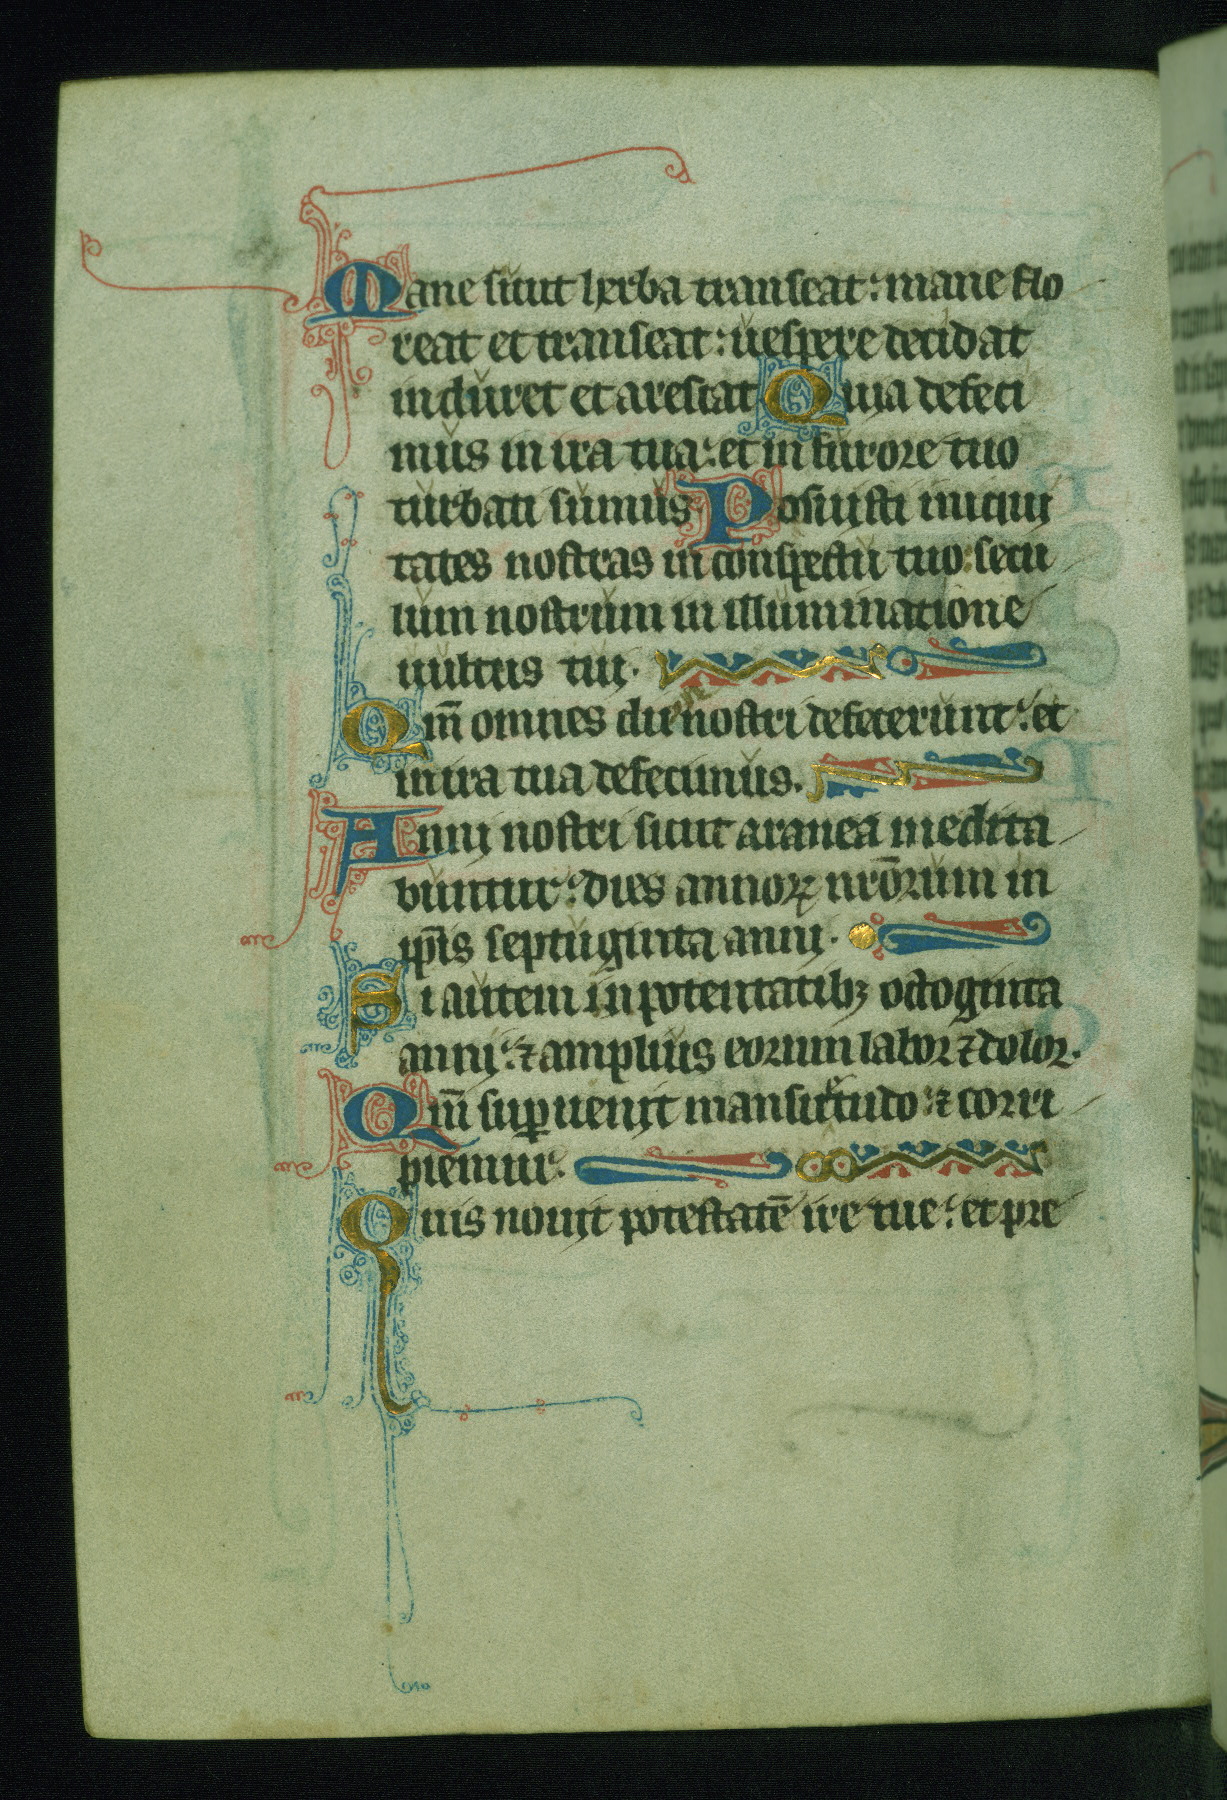 Mane sicut herba transeat: mane flo
reat et transeat: uespere decidat
induret et arescat Quia defeci
mus in ira tua: et in furore tuo
turbati sumus Posuisti iniqui
tates nostras in conspectu tuo: secu
lum nostrum in illuminatione
uultus tui.
Qm̄ omnes dies nostri defecerunt: et
in ira tua defecimus.
Anni nostri sicut aranea medita
buntur: dies annoꝝ nrōrum in
ip̄is septuginta anni.
Si autem in potentatibꝫ octoginta
anni: ⁊ amplius eorum labor ⁊ dolor.
Qm̄ suꝑuenit mansuetudo: ⁊ corri
piemur.
Quis nouit potestatē ire tue: et pre